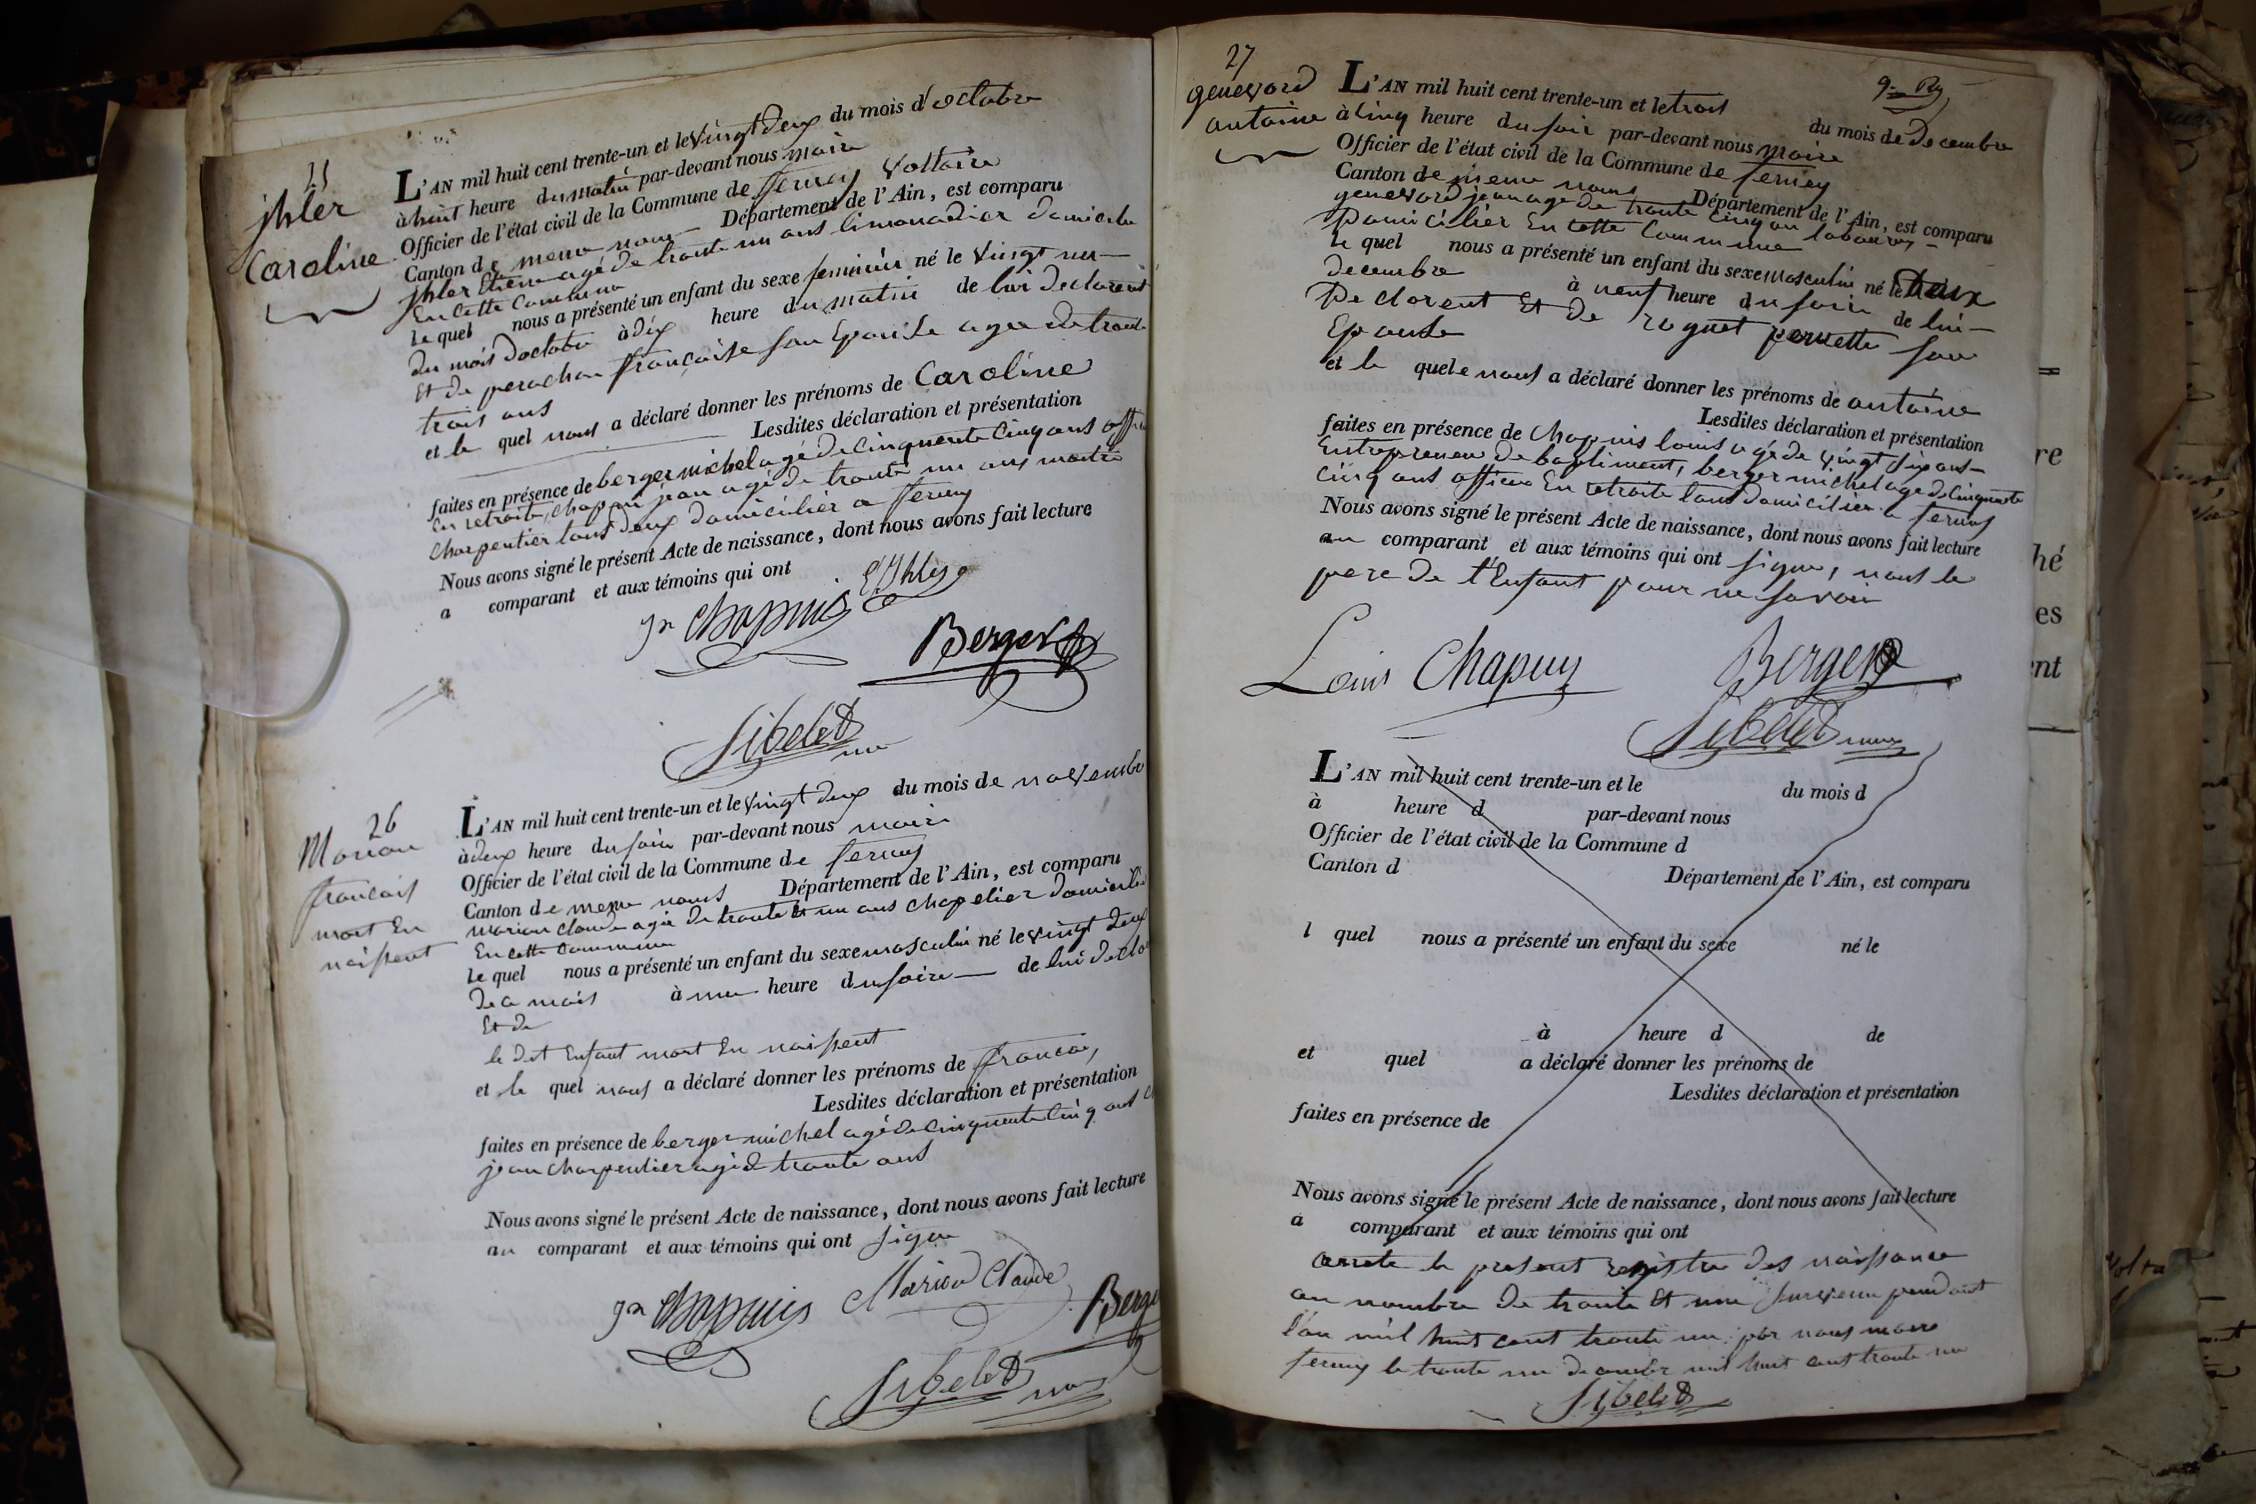 25
jhler
Caroline
L'AN mil huit cent trente-un et le vingt deux du mois d'octobre
à huit heure du matin par-devant nous maire
Officier de l'état civil de la Commune de ferney Voltaire
Canton de meme nom Département de l'Ain, est comparu
jhler Etiene agé de trante un ans limonadier domicilié
En Cette Commune
Le quel nous a présenté un enfant du sexe feminin né le vingt un
du mois doctobre à dix heure du matin de lui declarent
Et de perachon françoise son Epouse agee de trante
trois ans
et le quel nous a déclaré donner les prénoms de Caroline
Lesdites déclaration et présentation
faites en présence de berger michel agé de cinquente cinq ans
en retraite, chapuis jean agé de trante un ans maitre
charpentier tous deux domicilier a ferney
Nous avons signé le présent Acte de naissance, dont nous avons fait lecture
a comparant et aux témoins qui ont
E Jhler
jn Chappuis
Berger
Sibelet
26
Marion
francois
mort En
naissent
L'AN mil huit cent trente-un et le vingt deux du mois de novembre
à deux heure du soir par-devant nous maire
Officier de l'état civil de la Commune de ferney
Canton de meme noms Département de l'Ain, est comparu
marion claude agé de trante et un ans chapelier domicilié
En cette commune
Le quel nous a présenté un enfant du sexe masculin né le vingt deux
de a mois à une heure du soire de lui
Et de
le dit Enfant mort En naissent
et le quel nous a déclaré donner les prénoms de francois
Lesdites déclaration et présentation
faites en présence de berger michel agé de cinquente cinq ans
jean charpentier agé de trante ans
Nous avons signé le présent Acte de naissance, dont nous avons fait lecture
au comparant et aux témoins qui ont signe
jn Chappuis Marion Claude Berger
Sibelet
27
genevord
antoine
L'AN mil huit cent trente-un et le trois du mois de decembre
à cinq heure du soir par-devant nous maire
Officier de l'état civil de la Commune de ferney
Canton de meme noms Département de l'Ain, est comparu
genevord jean age de trante cinq an
Domicilier En cette Commune
Le quel nous a présenté un enfant du sexe masculin né le Deux
decembre à neuf heure du soir de lui
Declarent Et de roguet pernette son
Epouse
et le quele nous a déclaré donner les prénoms de antoine
Lesdites déclaration et présentation
faites en présence de Chapuis louis agé de vingt six ans
Entrepreneur de batiment, berger michel age de Cinquente
cinq ans officier En retraite tous domicilier a ferney
Nous avons signé le présent Acte de naissance, dont nous avons fait lecture
au comparant et aux témoins qui ont signe, nont le
pere de l'Enfant pour ne savoir
Louis Chapuy
Berger
Sibelet maire
L'AN mil huit cent trente-un et le du mois d
à heure d par-devant nous
Officier de l'état civil de la Commune d
Canton d Département de l'Ain, est comparu
l quel nous a présenté un enfant du sexe né le
à heure d de
et quel a déclaré donner les prénoms de
Lesdites déclaration et présentation
faites en présence de
Nous avons signé le présent Acte de naissance, dont nous avons fait lecture
a comparant et aux témoins qui ont
arrete le present registre des naissance
au nombre de trante et une survenu pendant
l'an mil huit cent trante un par nous maire
ferney le trante un decembre mil huit cent trante un
Sibelet
re
hé
es
ent